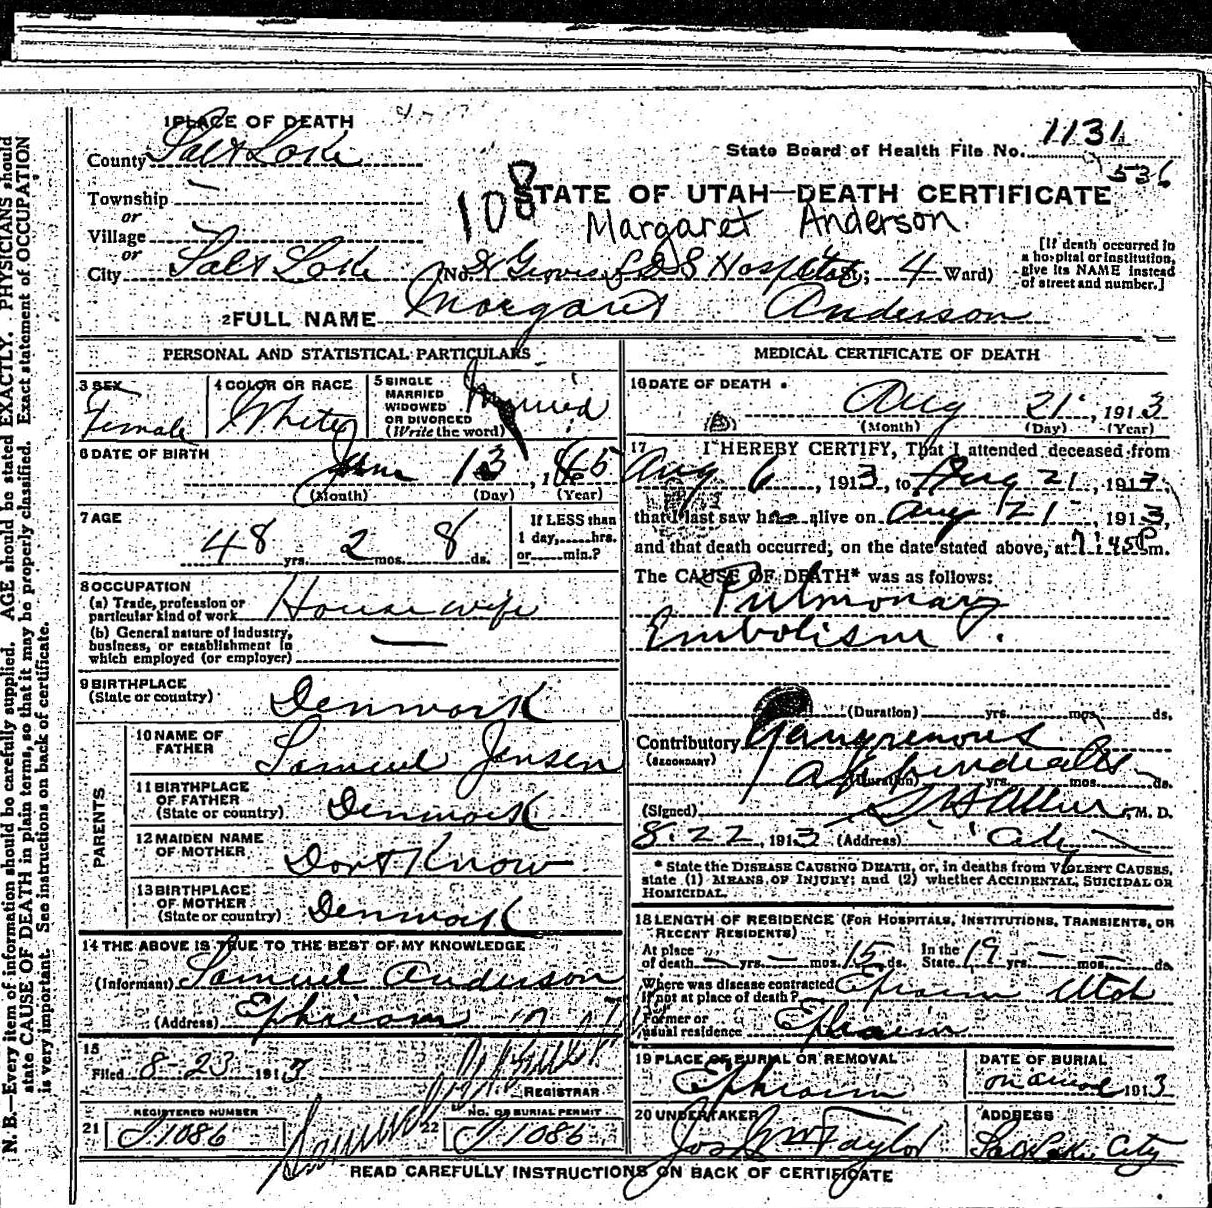 1 PLACE OF DEATH
County Salt Lake
State Board of Health File No. 1131
536
Township —
or
Village
or
108
STATE OF UTAH—DEATH CERTIFICATE
Margaret Anderson
City Salt Lake (No. Groves L D S Hospital St; 4 Ward)
[If death occurred in
a hospital or institution,
give its NAME instead
of street and number.]
2 FULL NAME Margaret Anderson
PERSONAL AND STATISTICAL PARTICULARS
3 SEX
Female
4 COLOR OR RACE
White
5 SINGLE
MARRIED
WIDOWED
OR DIVORCED
(Write the word)
Married
6 DATE OF BIRTH
13, 1865
(Month) (Day) (Year)
7 AGE
48 yrs. 2 mos. 8 ds.
If LESS than
1 day,......hrs.
or......min.?
8 OCCUPATION
(a) Trade, profession or
particular kind of work Housewife
(b) General nature of industry,
business, or establishment in
which employed (or employer) —
9 BIRTHPLACE
(State or country) Denmark
PARENTS
10 NAME OF
FATHER Samuel Jensen
11 BIRTHPLACE
OF FATHER
(State or country) Denmark
12 MAIDEN NAME
OF MOTHER Dont Know
13 BIRTHPLACE
OF MOTHER
(State or country) Denmark
14 THE ABOVE IS TRUE TO THE BEST OF MY KNOWLEDGE
(Informant) Samuel Anderson
(Address) Ephriam
15
Filed 8-23 1913
REGISTRAR
REGISTERED NUMBER
21 J1086
NO. OF BURIAL PERMIT
22 J1086
MEDICAL CERTIFICATE OF DEATH
16 DATE OF DEATH
Aug 21, 1913
(Month) (Day) (Year)
17 I HEREBY CERTIFY, That I attended deceased from
Aug 6, 1913, to Aug 21, 1913,
that I last saw her alive on Aug 21, 1913,
and that death occurred, on the date stated above, at 7:45 P m.
The CAUSE OF DEATH* was as follows:
Pulmonary
Embolism.
(Duration) yrs. mos. ds.
Contributory Gangrenous
(SECONDARY)
Appendicitis
(Duration) yrs. mos. ds.
(Signed) M. D.
8-22, 1913 (Address) City
*State the DISEASE CAUSING DEATH, or, in deaths from VIOLENT CAUSES,
state (1) MEANS OF INJURY; and (2) whether ACCIDENTAL, SUICIDAL OR
HOMICIDAL.
18 LENGTH OF RESIDENCE (FOR HOSPITALS, INSTITUTIONS, TRANSIENTS, OR
RECENT RESIDENTS)
At place
of death — yrs. — mos. 15 ds. In the
State 19 yrs. — mos. — ds.
Where was disease contracted
If not at place of death? Ephraim Utah
Former or
usual residence Ephraim
19 PLACE OF BURIAL OR REMOVAL
Ephraim
DATE OF BURIAL
on arival 1913
20 UNDERTAKER
Jos Wm Taylor
ADDRESS
Salt Lake City
READ CAREFULLY INSTRUCTIONS ON BACK OF CERTIFICATE
N. B.—Every item of information should be carefully supplied. AGE should be stated EXACTLY. PHYSICIANS should
state CAUSE OF DEATH in plain terms, so that it may be properly classified. Exact statement of OCCUPATION
is very important. See instructions on back of certificate.